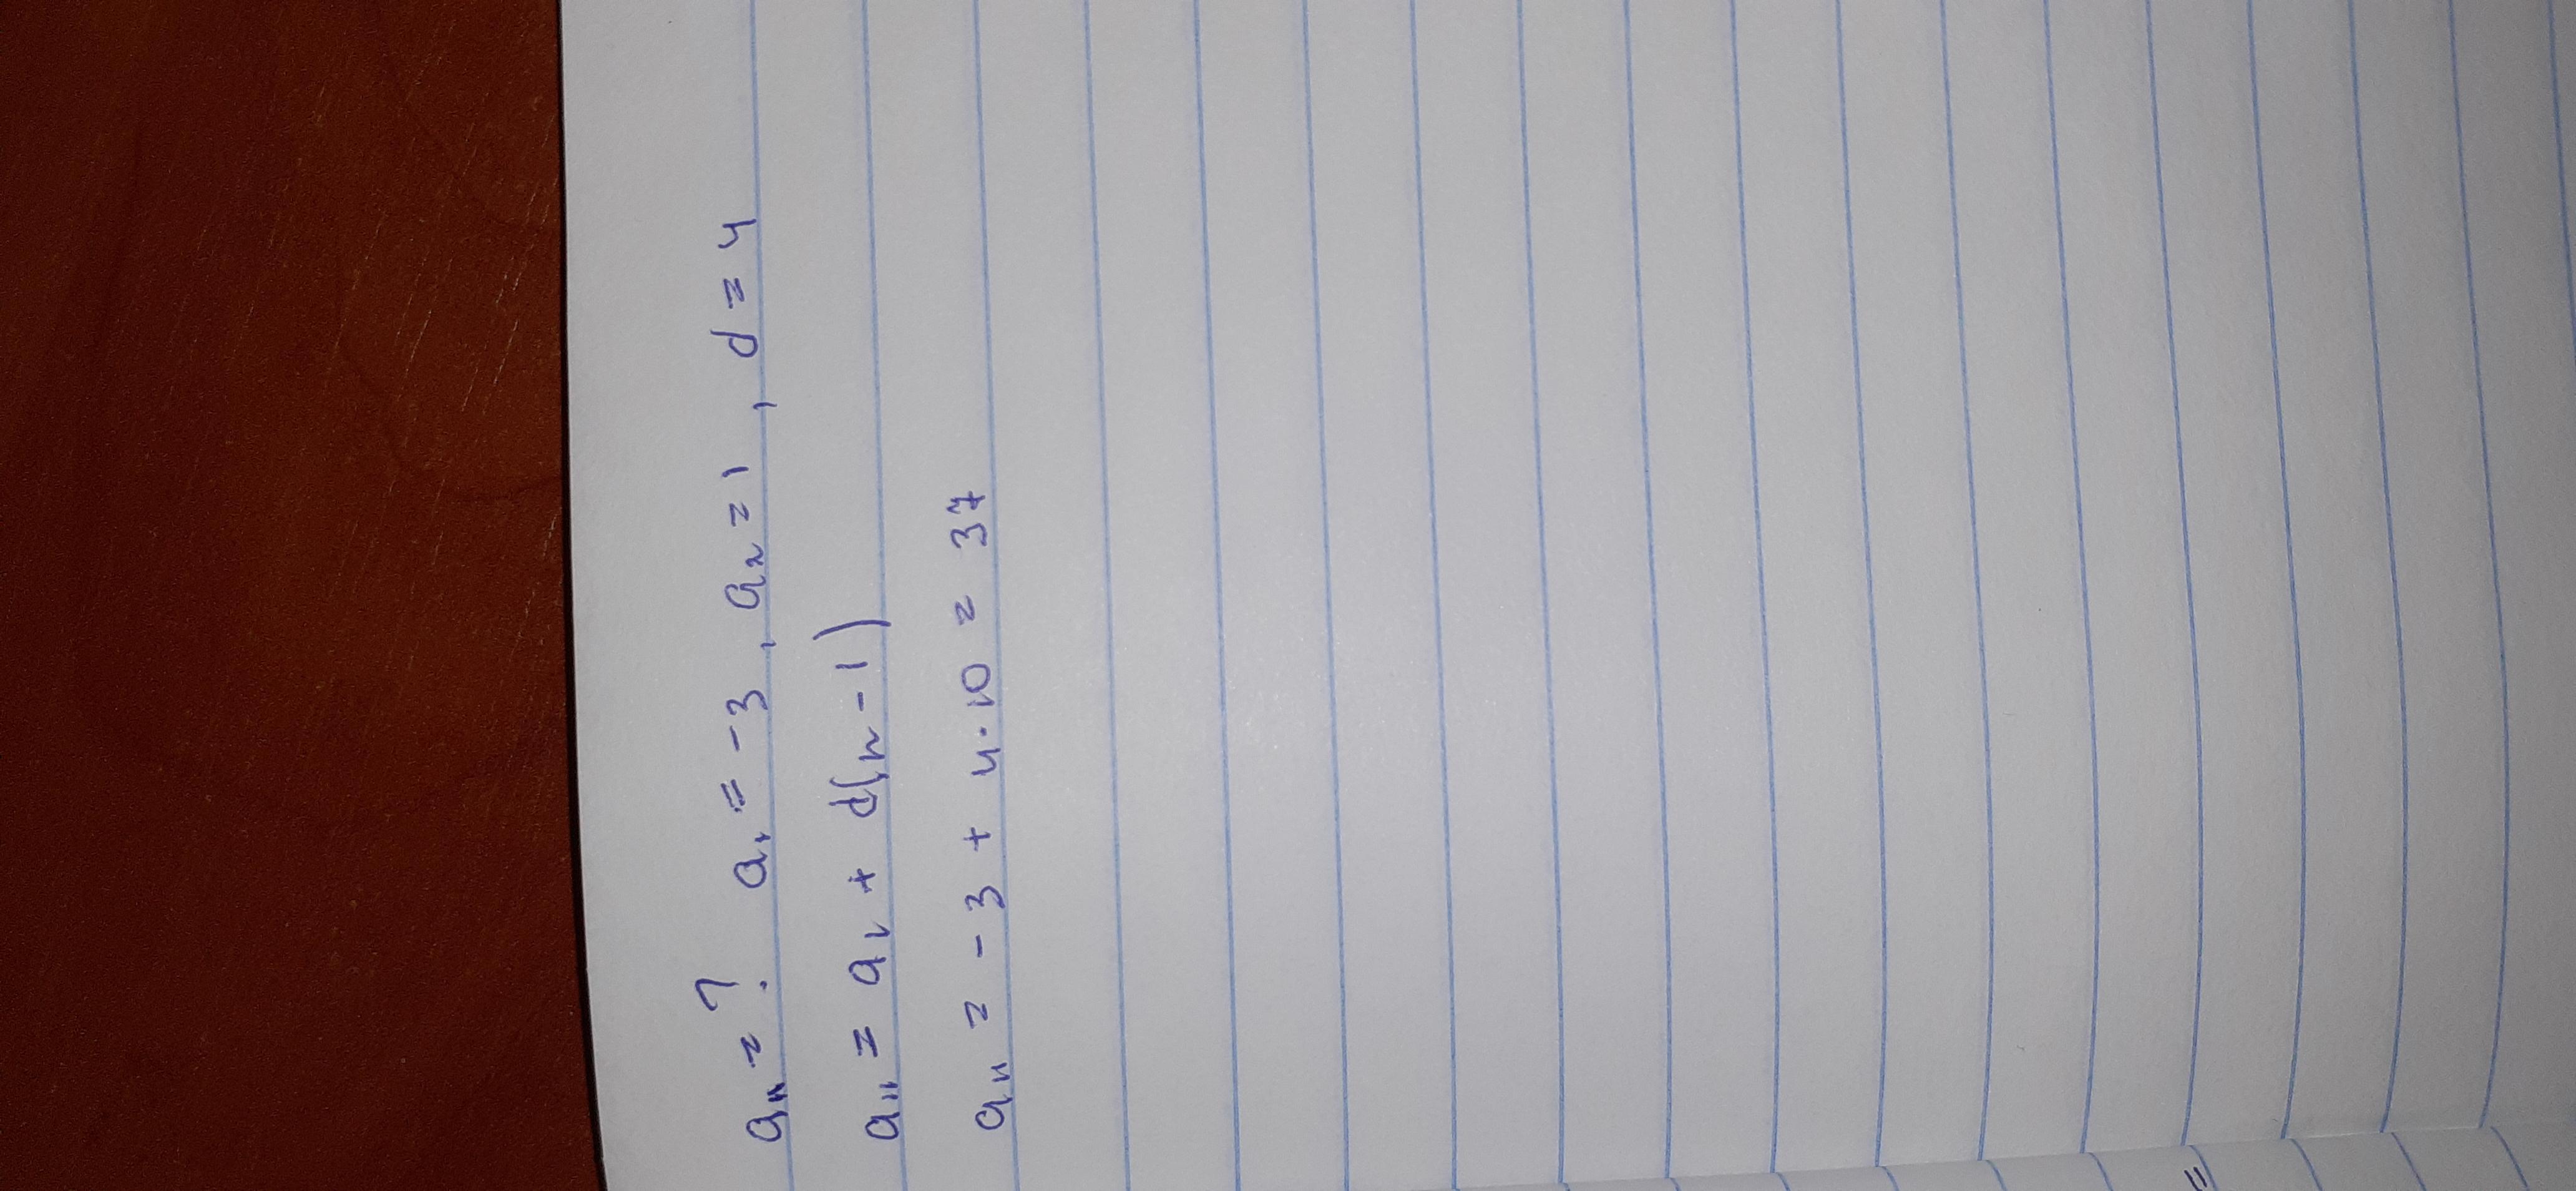 a₁₁ = ? a₁ = -3, a₂ = 1, d = 4
a₁₁ = a₁ + d(n-1)
a₁₁ = -3 + 4·10 = 37
=